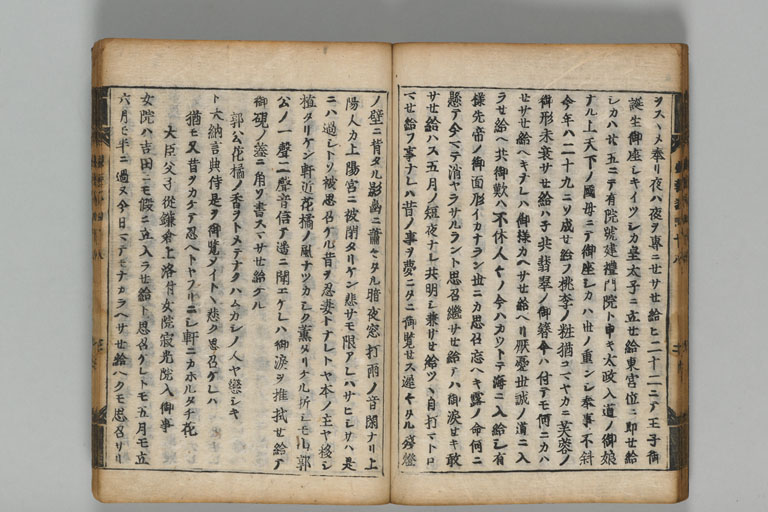 ヲスヽメ奉リ夜ハ夜ヲ専ニセサセ給ヒ二十二ニテ王子御
誕生御座シキイツシカ皇太子ニ立セ給東宮位ニ即セ給
シカハ廿五ニテ有院號建禮門院ト申キ太政入道ノ御娘
ナル上天下ノ國母ニテ御座シカハ世ノ重シシ奉事不斜
今年ハ二十九ニソ成セ給フ桃李ノ粧猶コマヤカニ芙蓉ノ
御形未衰サセ給ハ子共翡翠ノ御簪今ハ付テモ何ニカハ
セサセ給ヘキナレハ御様カヘサセ給ヘリ厭憂世誠ノ道ニ入
ラセ給ヘ共御歎ハ不休人々ノ今ハカウトテ海ニ入給シ有
様先帝ノ御面影イカナラン世ニカ思召忘ヘキ露ノ命何ニ
懸テ今マテ消ヤラサルラント思召繼サセ給テハ御涙セキ敢
サセ給ハス五月ノ短夜ナレ共明シ兼サセ給ツヽ自打マトロ
マセ給フ事ナレハ昔ノ事ヲ夢ニタニ御覧セス遅々タル殘燈
ノ壁ニ背タル影幽ニ蕭々タル暗夜窓打雨ノ音閑ナリ上
陽人カ上陽宮ニ被閉タリケン悲サモ限アレハサヒシサハ是
ニハ過シトソ被思召ケル昔ヲ忍妻トナレトヤ本ノ主ヤ移シ
植タリケン軒近花橘ノ風ナツカシク薫タリケル折シモ山郭
公ノ一聲二聲音信テ遙ニ聞エケレハ御涙ヲ推拭セ給テ
御硯ノ蓋ニ角ソ書スマサセ給ケル
郭公花橘ノ香ヲトメテナクハムカシノ人ヤ戀シキ
ト大納言典侍是ヲ御覧メイトヽ悲ク思召ケレハ
猶モ又昔ヲカケテ忍ヘトヤフリニシ軒ニカホルタチ花
大臣父子從鎌倉上洛付女院寂光院入御事
女院ハ吉田ニモ假ニ立入ラセ給ト思召ケレトモ五月モ立
六月モ半ニ過ヌ今日マテモナカラヘサセ給ヘクモ思召サリ